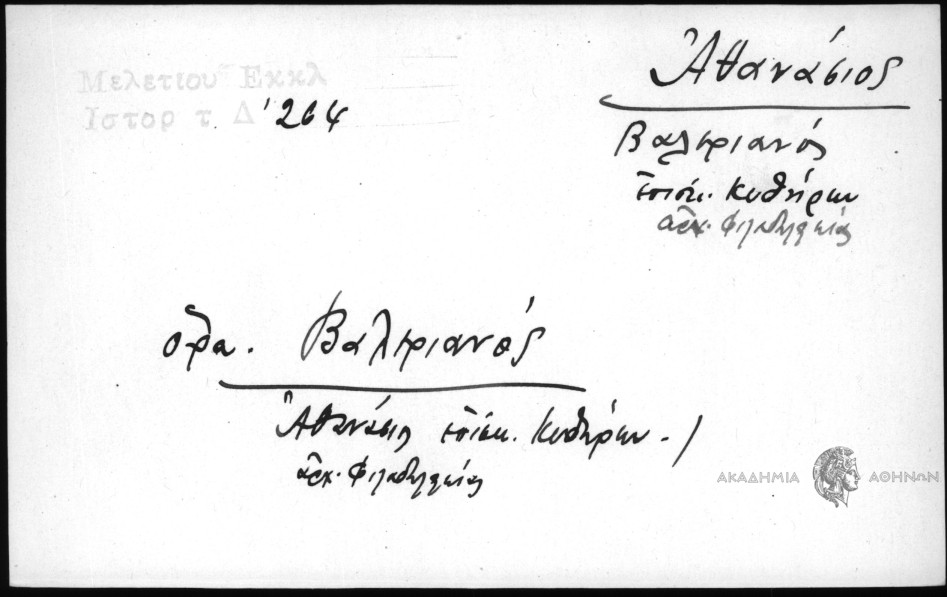 Μελετίου Εκκλ
Ιστορ τ Δ' 264
Ἀθανάσιος
Βαλεριανός
ἐπίσκ. Κυθήρων
ἀρχ. Φιλαδελφείας
ὅρα. Βαλεριανός
Ἀθανάσιος ἐπίσκ. Κυθήρων - /
ἀρχ. Φιλαδελφείας
ΑΚΑΔΗΜΙΑ ΑΘΗΝΩΝ